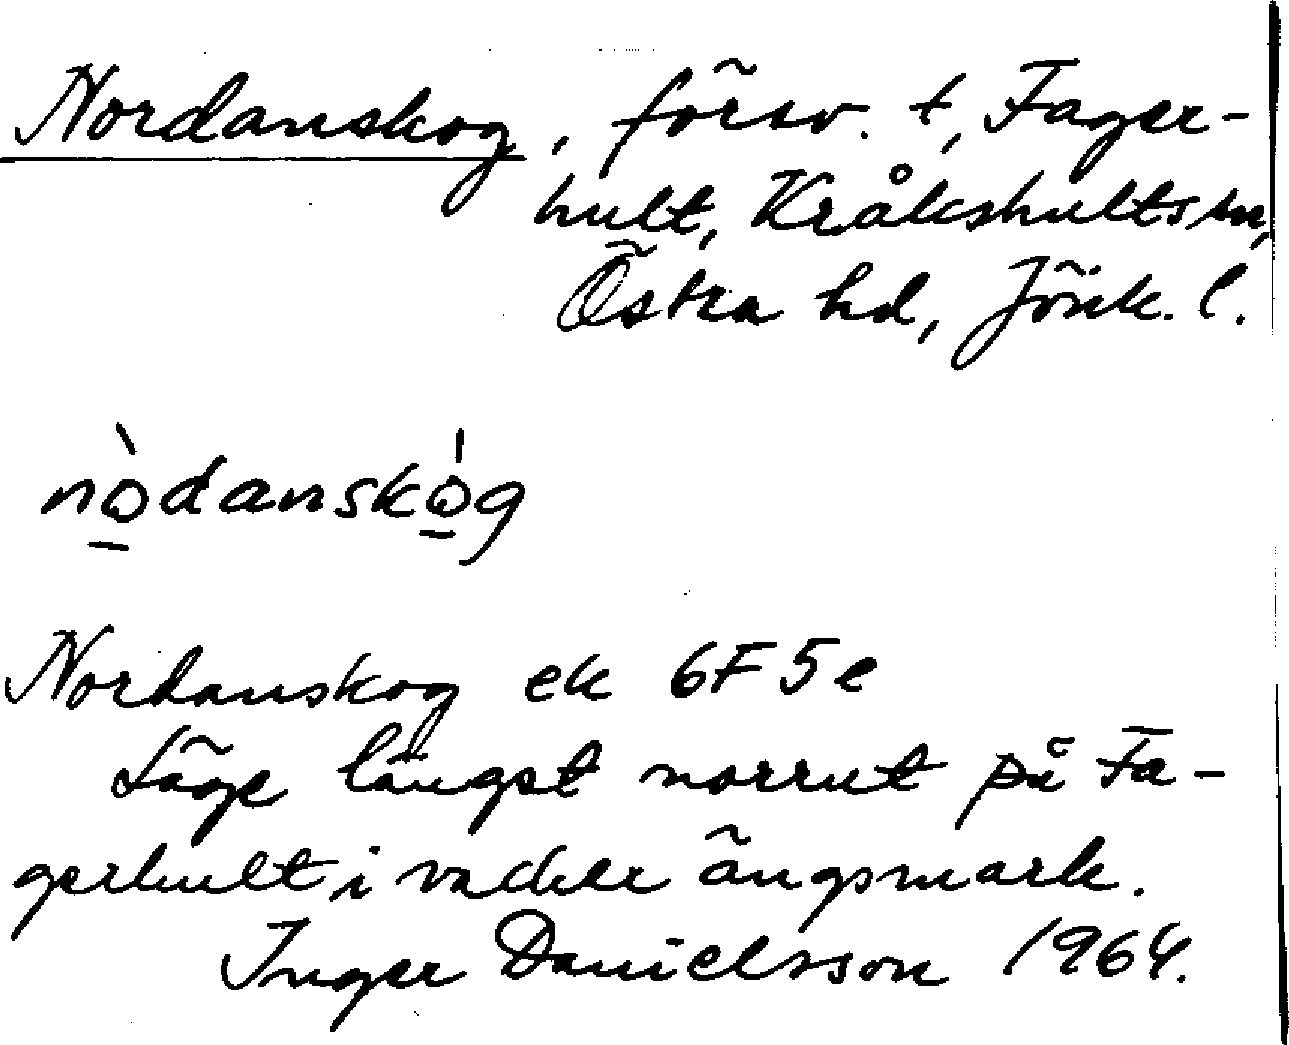 Nordanskog, försv. t, Fager-
hult, Kråkshults sn,
Östra hd, Jönk. l.
nò̱danskó̱g
Nordanskog ek 6F5e
Låge längst norrut på Fa-
gerhult, i vacker ängsmark.
Inger Danielsson 1964.